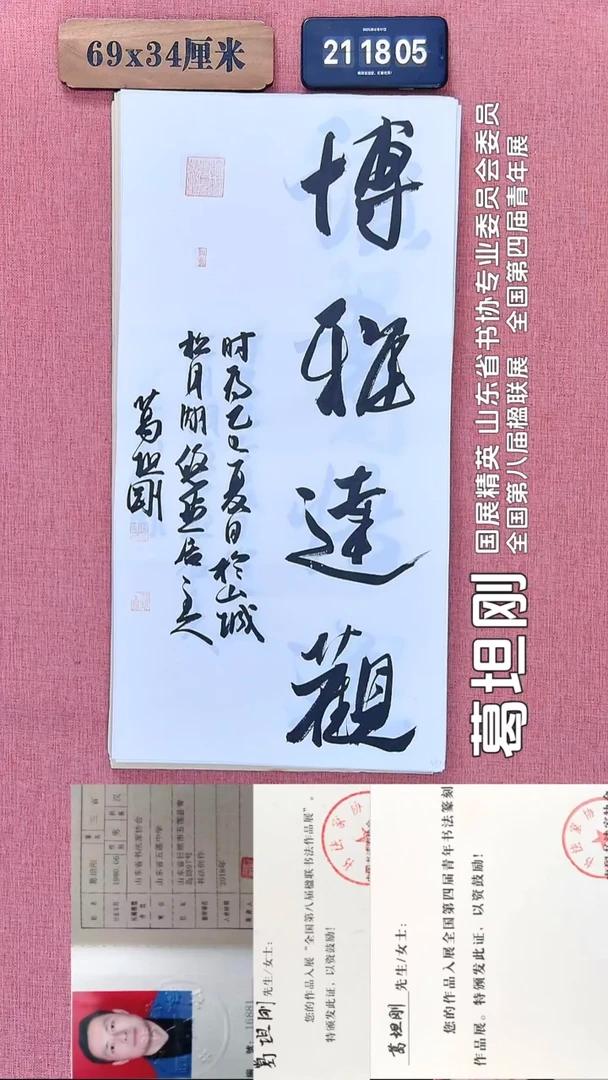 69x34厘米
21 18 05
博雅達觀
时为乙巳夏日於山城
松月湖悠然居主人
葛坦剛
国展精英 山东省书协专业委员会委员
全国第八届楹联展 全国第四届青年展
葛坦刚
山东省书法家协会
山东省五莲中学
2018年
葛坦刚 先生/女士：
您的作品入展“全国第八届楹联书法作品展”。
特颁发此证，以资鼓励！
葛坦刚 先生/女士：
您的作品入展全国第四届青年书法篆刻
作品展。特颁发此证，以资鼓励！